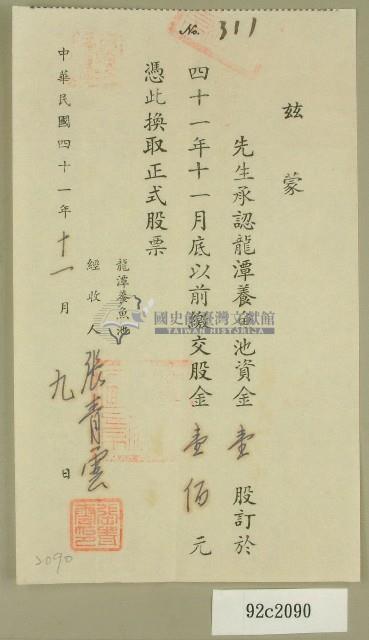 No. 311
茲蒙
先生承認龍潭養魚池資金壹股訂於
四十一年十一月底以前繳交股金壹佰元
憑此換取正式股票
龍潭養魚池
經收人 張青雲
中華民國四十一年十一月九日
2090
國史館臺灣文獻館
TAIWAN HISTORICA
92c2090